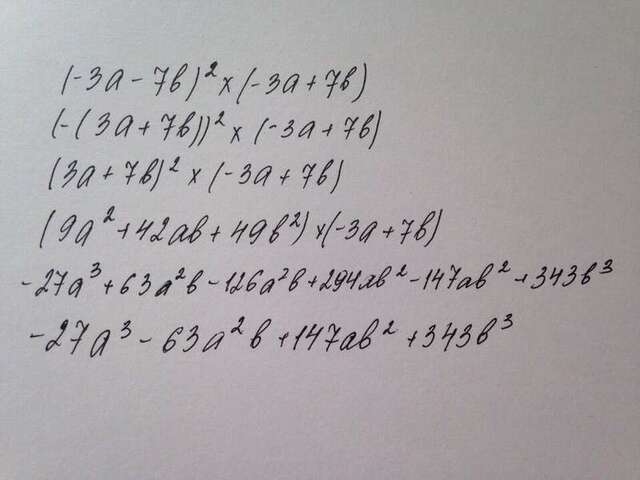 (-3a - 7b)² × (-3a + 7b)
(-(3a + 7b))² × (-3a + 7b)
(3a + 7b)² × (-3a + 7b)
(9a² + 42ab + 49b²) × (-3a + 7b)
-27a³ + 63a²b - 126a²b + 294ab² - 147ab² + 343b³
-27a³ - 63a²b + 147ab² + 343b³